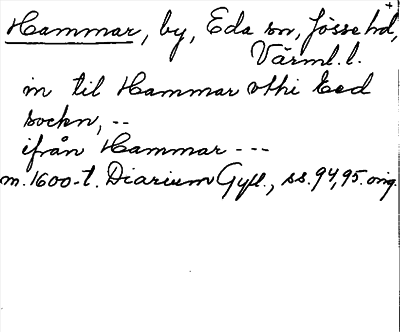 Hammar, by, Eda sn, Jösse hd,
Värml. l.
in til Hammar vthi Eed
sockn, --
ifrån Hammar ---
m. 1600-t. Diarium Gyll., ss. 94, 95. orig.